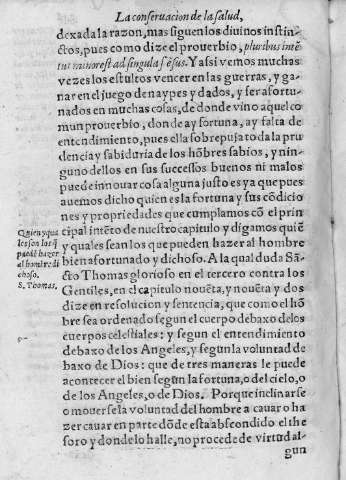 La conseruacion de la salud,
dexada la razon, mas siguen los diuinos instin-
ctos, pues como dize el prouerbio, pluribus inte͂-
tus minor est ad singula se͂sus. Y assi vemos muchas
vezes los estultos vencer en las guerras, y ga-
nar en el juego de naypes y dados, y ser afortu-
nados en muchas cosas, de donde vino aquel co
mun prouerbio, donde ay fortuna, ay falta de
entendimiento, pues ella sobrepuja toda la pru
dencia y sabiduria de los hõbres sabios, y nin-
guno dellos en sus sucessos buenos ni malos
puede innouar cosa alguna justo es ya que pues
auemos dicho quien es la fortuna y sus cõdicio
nes y propiedades que cumplamos cõ el prin
cipal inte͂to de nuestro capitulo y digamos quie͂
y quales sean los que pueden hazer al hombre
bien afortunado y dichoso. A la qual duda Sã-
cto Thomas glorioso en el tercero contra los
Gentiles, en el capitulo noue͂ta, y noue͂ta y dos
dize en resolucion y sentencia, que como el hõ
bre sea ordenado segun el cuerpo debaxo de los
cuerpos celestiales: y segun el entendimiento
debaxo de los Angeles, y segun la voluntad de
baxo de Dios: que de tres maneras le puede
acontecer el bien segun la fortuna, o del cielo, o
de los Angeles, o de Dios. Porque inclinarse
o mouerse la voluntad del hombre a cauar o ha
zer cauar en parte dõde esta abscondido el the
soro y donde lo halle, no procede de virtud al-
gun
Quien y qua
les son los q̃
puede͂ hazer
al hombre di
choso.
S. Thomas.